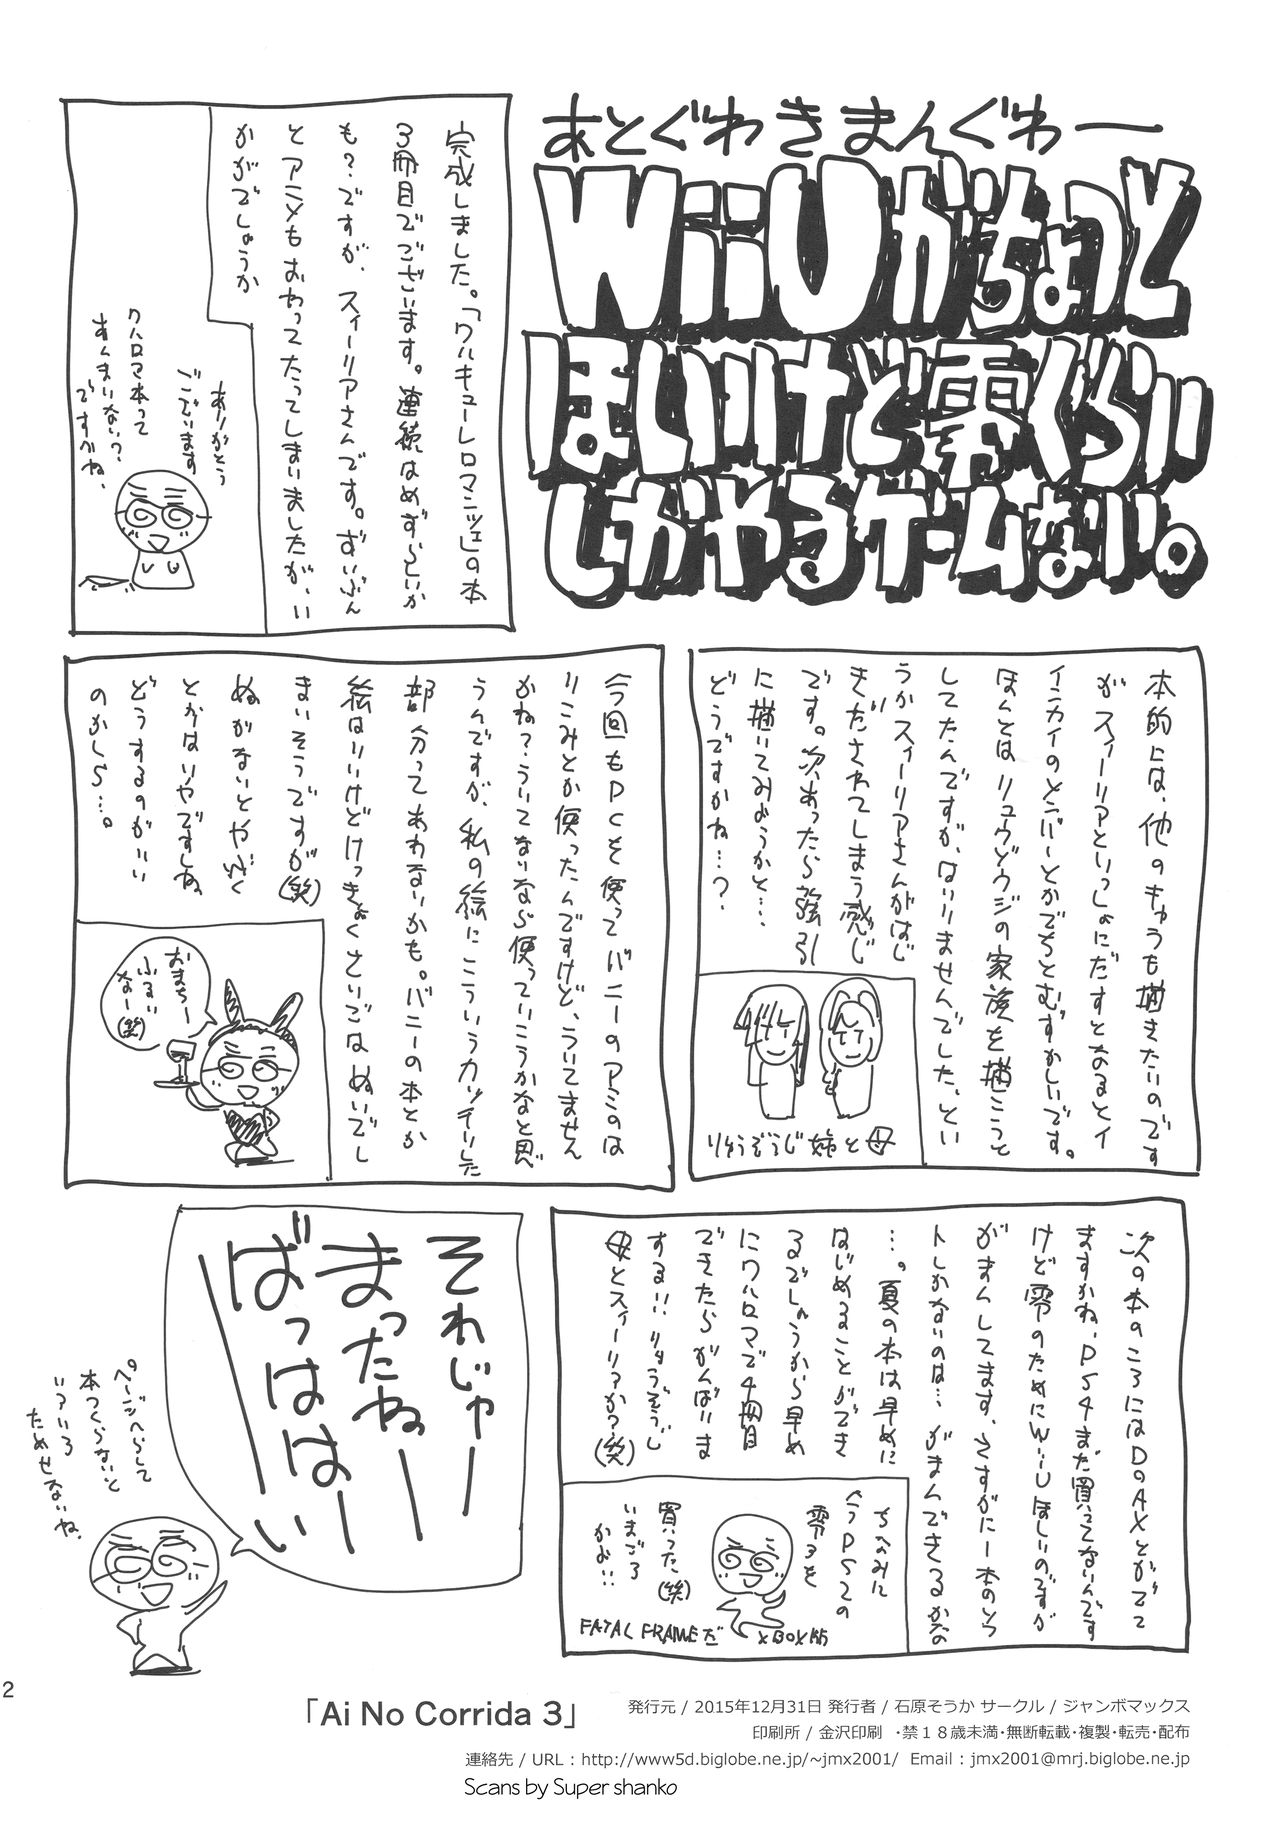 あとぐわきまんぐわー
WiiUがちょっと
ほしいけど零ぐらい
しかやるゲームない。
完成しました。「ワルキューレロマンツェ」の本
3冊目でございます。連続はめずらしいか
も？ですが、スィーリアさんです。ずいぶん
とアニメもおわってたってしまいましたが、い
かがでしょうか
ありがとう
ございます
ワルロマ本って
あんまりない？
ですかね、
本的には、他のきゃらも描きたいのです
がスィーリアといっしょにだすとなるとイ
インカイのメンバーとかでちとむずかしいです。
ほんとはリュウゾウジの家族を描こうと
してたんですが、はいりませんでした、とい
うかスィーリアさんがはじ
きだされてしまう感じ
です。次あったら強引
に描いてみようかと…
どうですかね…？
りゅうぞうじ姉と母
今回もPCを使ってバニーのアミのは
りこみとか使ったんですけど、ういてません
かね？ういてないなら使っていこうかなと思
うんですが、私の絵にこういうカッチリした
部分ってあわないかも。バニーの本とか
絵はいいけどけっきょくさいごはぬいでし
まいそうですが(笑)
ぬがないとやぶく
とかはいやですしね
どうするのがいい
のかしら…。
おまちー
ふるい
なー(笑)
次の本のころにはDOAXとかでて
ますかね、PS4まだ買ってないんです
けど零のためにWiiUほしいのですが
がまんしてます、さすがに一本のソフ
トしかないのは…がまんできるかな
…。夏の本は早めに
はじめることができ
るでしょうから早め
にワルロマで4冊目
できたらがんばりま
する!!りゅうぞうじ
母とスィーリアか？(笑)
ちなみに
今PS2の
零3を
買った(笑)
いまごろ
かよ!!
FATAL FRAMEだ
XBOX版
それじゃー
まったねー
ばっはは〜い
ページへらして
本つくらないと
いろいろ
ためせないね、
2
「Ai No Corrida 3」
発行元 / 2015年12月31日 発行者 / 石原そうか サークル / ジャンボマックス
印刷所 / 金沢印刷 ・禁１８歳未満・無断転載・複製・転売・配布
連絡先 / URL : http://www5d.biglobe.ne.jp/~jmx2001/ Email : jmx2001@mrj.biglobe.ne.jp
Scans by Super shanko